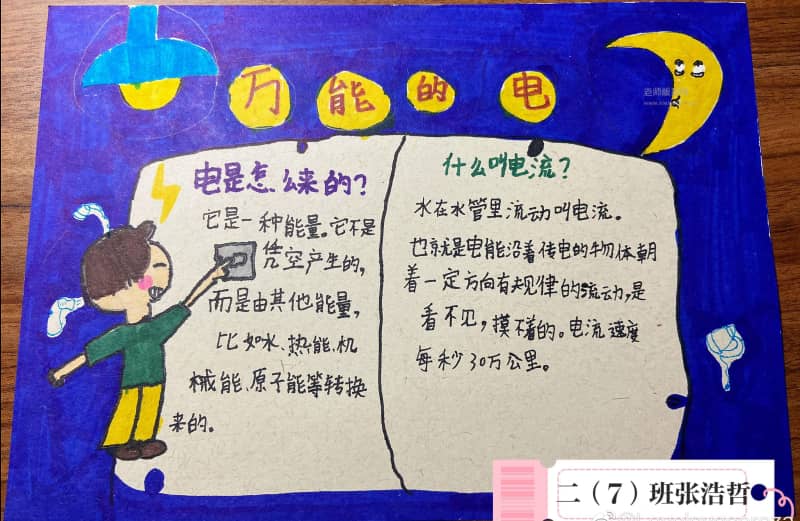 万能的电
电是怎么来的？
它是一种能量。它不是
凭空产生的，
而是由其他能量，
比如水、热能、机
械能、原子能等转换
来的。
什么叫电流？
水在水管里流动叫电流。
也就是电能沿着传电的物体朝
着一定方向有规律的流动，是
看不见，摸不着的。电流速度
每秒30万公里。
二（7）班张浩哲